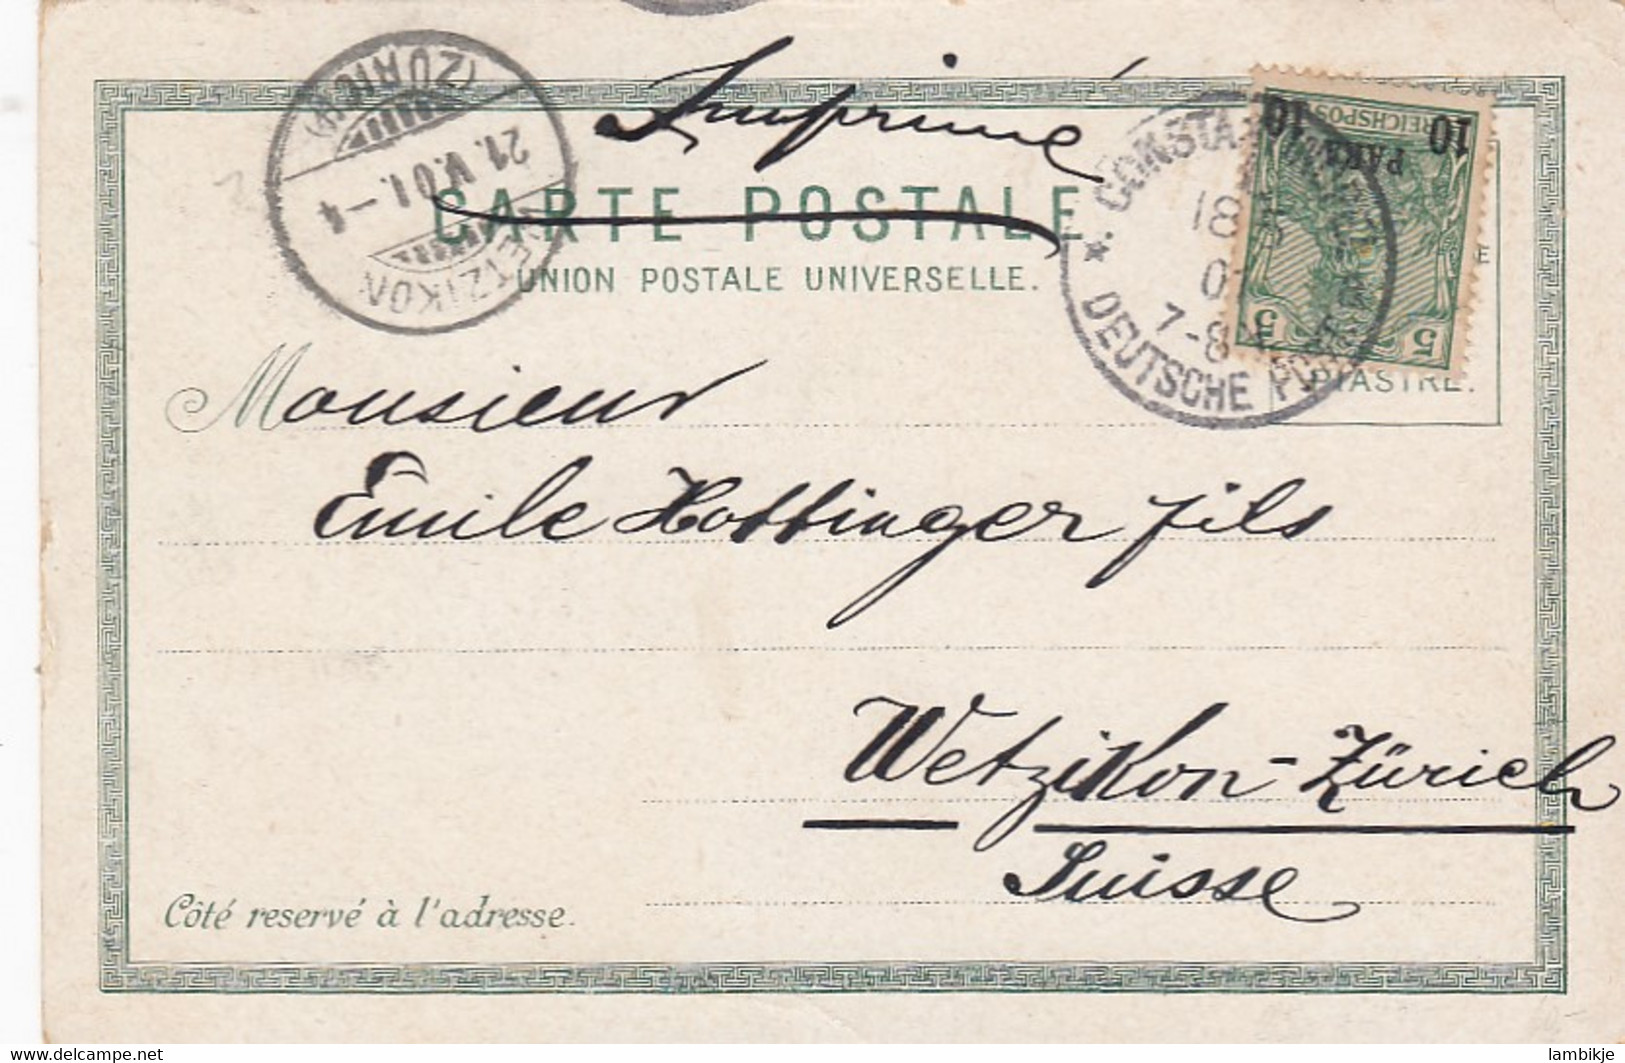 Imprimé
CARTE POSTALE
UNION POSTALE UNIVERSELLE.
WETZIKON
21.V.01.–4
(ZÜRICH)
DEUTSCHE
7-8
REICHSPOST
10 10
PARA
5 5
PIASTRE.
Monsieur
Emile Hottinger fils
Wetzikon-Zürich
Suisse
Côté reservé à l'adresse.
delcampe.net
lambikje